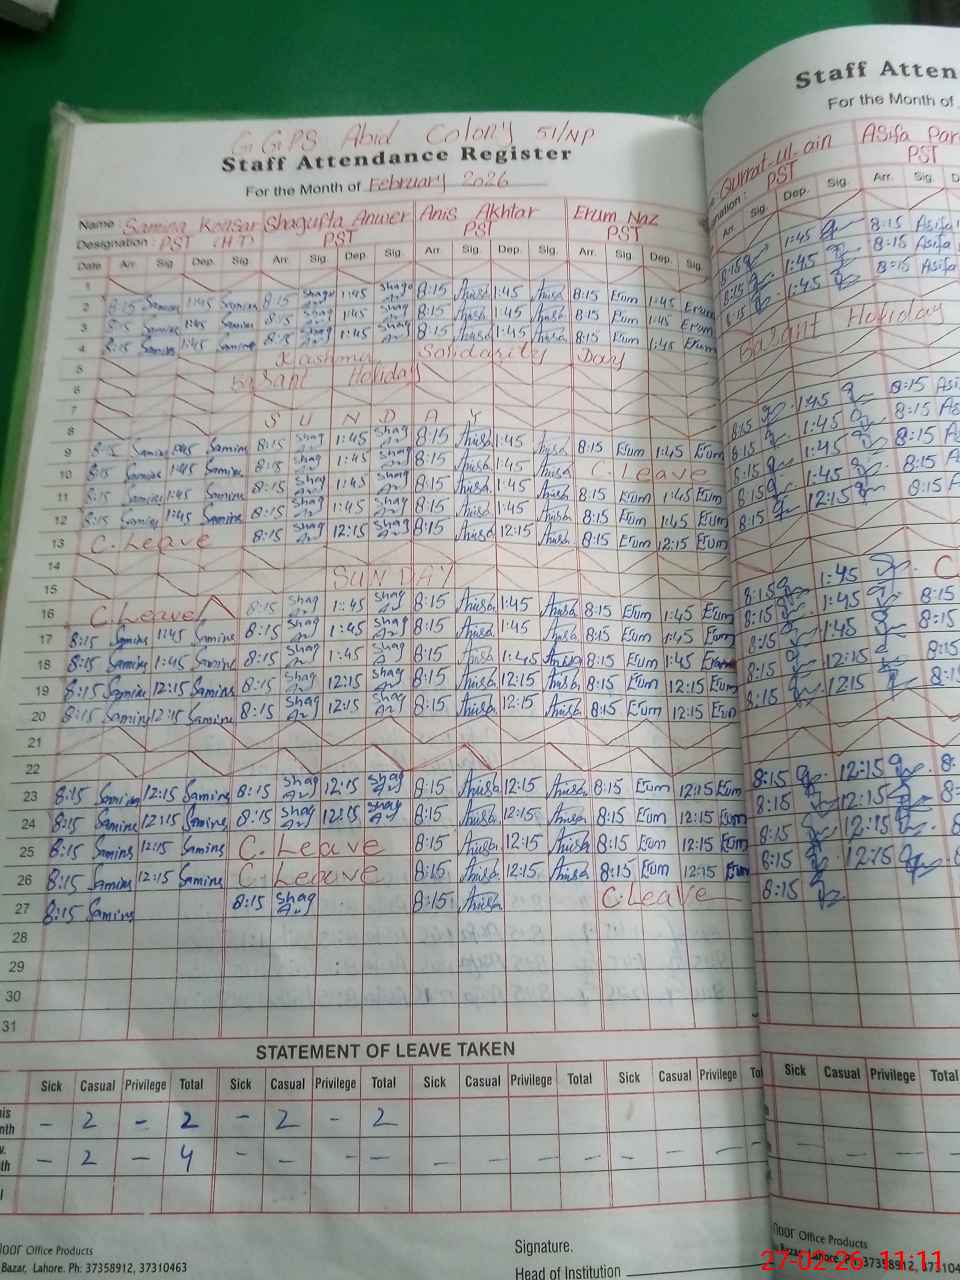 G GPS Abid Colony 51/NP
Staff Attendance Register
For the Month of February 2026
Name: Samina Kousar Shagufta Anwer Anis Akhtar Erum Naz
Designation: PST (HT) PST PST PST
Date Arr. Sig. Dep. Sig. Arr. Sig. Dep. Sig. Arr. Sig. Dep. Sig. Arr. Sig. Dep. Sig.
1
2 8:15 Samina 1:45 Samina 8:15 Shag 1:45 Shag 8:15 Anisa 1:45 Anisa 8:15 Erum 1:45 Erum
3 8:15 Samina 1:45 Samina 8:15 Shag 1:45 Shag 8:15 Anisa 1:45 Anisa 8:15 Erum 1:45 Erum
4 8:15 Samina 1:45 Samina 8:15 Shag 1:45 Shag 8:15 Anisa 1:45 Anisa 8:15 Erum 1:45 Erum
5 Kashmir Solidarity Day
6 Basant Holiday
7
8 SUNDAY
9 8:15 Samina 1:45 Samina 8:15 Shag 1:45 Shag 8:15 Anisa 1:45 Anisa 8:15 Erum 1:45 Erum
10 8:15 Samina 1:45 Samina 8:15 Shag 1:45 Shag 8:15 Anisa 1:45 Anisa C.Leave
11 8:15 Samina 1:45 Samina 8:15 Shag 1:45 Shag 8:15 Anisa 1:45 Anisa 8:15 Erum 1:45 Erum
12 8:15 Samina 1:45 Samina 8:15 Shag 1:45 Shag 8:15 Anisa 1:45 Anisa 8:15 Erum 1:45 Erum
13 C.Leave 8:15 Shag 12:15 Shag 8:15 Anisa 12:15 Anisa 8:15 Erum 12:15 Erum
14
15 SUNDAY
16 C.Leave 8:15 Shag 1:45 Shag 8:15 Anisa 1:45 Anisa 8:15 Erum 1:45 Erum
17 8:15 Samina 1:45 Samina 8:15 Shag 1:45 Shag 8:15 Anisa 1:45 Anisa 8:15 Erum 1:45 Erum
18 8:15 Samina 1:45 Samina 8:15 Shag 1:45 Shag 8:15 Anisa 1:45 Anisa 8:15 Erum 1:45 Erum
19 8:15 Samina 12:15 Samina 8:15 Shag 12:15 Shag 8:15 Anisa 12:15 Anisa 8:15 Erum 12:15 Erum
20 8:15 Samina 12:15 Samina 8:15 Shag 12:15 Shag 8:15 Anisa 12:15 Anisa 8:15 Erum 12:15 Erum
21
22
23 8:15 Samina 12:15 Samina 8:15 Shag 12:15 Shag 8:15 Anisa 12:15 Anisa 8:15 Erum 12:15 Erum
24 8:15 Samina 12:15 Samina 8:15 Shag 12:15 Shag 8:15 Anisa 12:15 Anisa 8:15 Erum 12:15 Erum
25 8:15 Samina 12:15 Samina C.Leave 8:15 Anisa 12:15 Anisa 8:15 Erum 12:15 Erum
26 8:15 Samina 12:15 Samina C.Leave 8:15 Anisa 12:15 Anisa 8:15 Erum 12:15 Erum
27 8:15 Samina 8:15 Shag 8:15 Anisa C.Leave
28
29
30
31
STATEMENT OF LEAVE TAKEN
Sick Casual Privilege Total Sick Casual Privilege Total Sick Casual Privilege Total Sick Casual Privilege
– 2 – 2 – 2 – 2
– 2 – 4 – – – – – – – – – – –
Office Products
Bazar, Lahore. Ph: 37358912, 37310463
Signature.
Head of Institution
Staff Atten
For the Month of
Qurrat-ul-ain Asifa
PST PST
Arr. Sig. Dep. Sig. Arr. Sig.
8:15 1:45 8:15 Asifa
8:15 1:45 8:15 Asifa
8:15 1:45 8:15 Asifa
Basant Holiday
8:15 1:45 8:15
8:15 1:45 8:15
8:15 1:45 8:15
8:15 1:45 8:15
8:15 12:15 8:15
8:15 1:45 C
8:15 1:45 8:15
8:15 1:45 8:15
8:15 12:15 8:15
8:15 12:15
8:15 12:15
8:15 12:15
8:15 12:15
8:15 12:15
8:15
Sick Casual Privilege Total Sick Casual Privilege Total
Office Products
Lahore. Ph: 37358912
27-02-26 11:11